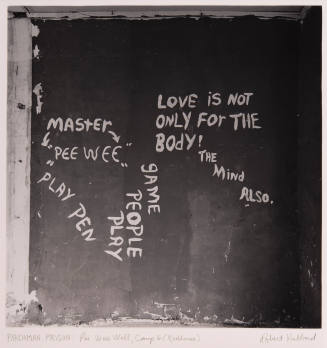 MASTER
"PEE WEE"
"PLAY PEN
GAME
PEOPLE
PLAY
LOVE iS NOT
ONLY FOR THE
BODY!
THE
MiND
ALSO.
PARCHMAN PRISON: Pee Wee's Wall, Camp 6